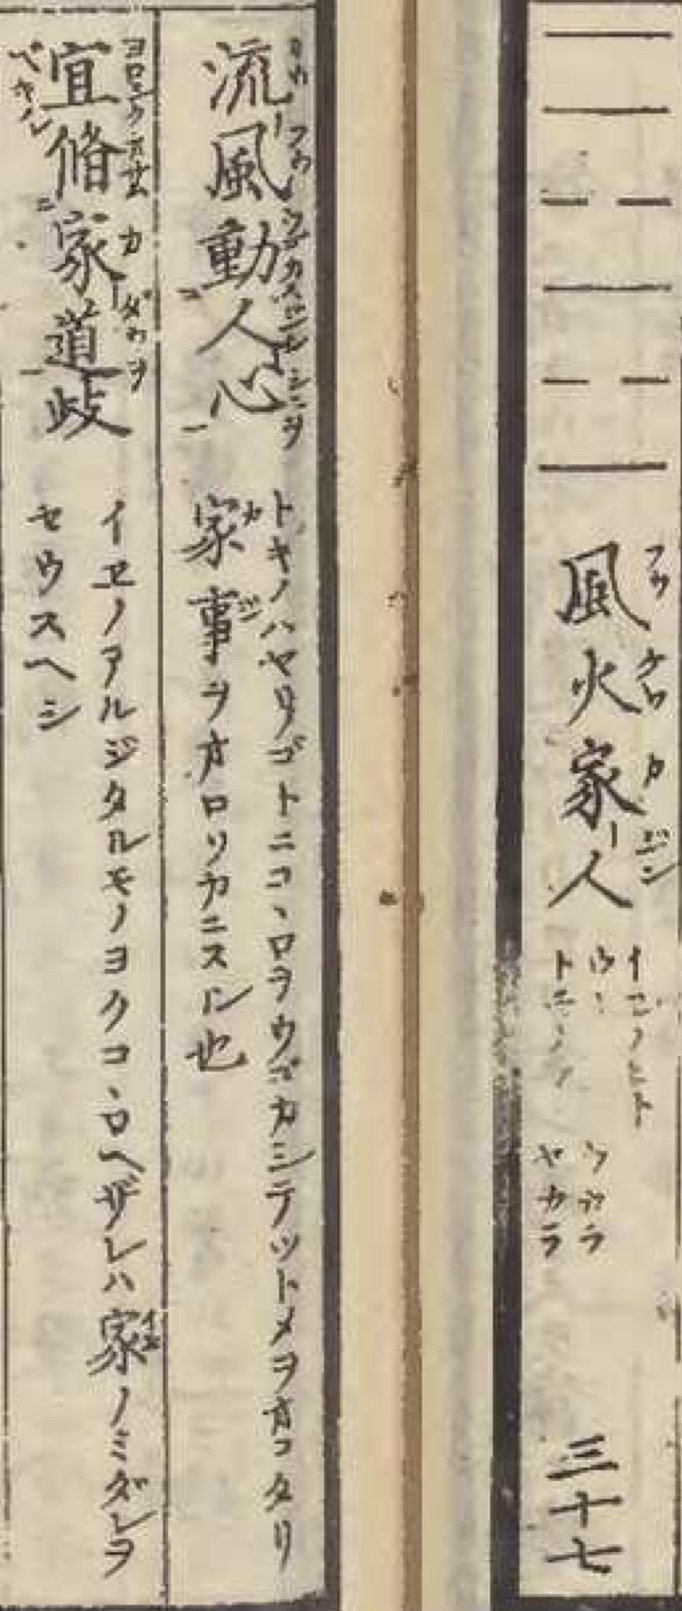 風火家人 イエノヒト ウカラ ヤカラ 三十七
流風動人心
トキノハヤリゴトニコヽロヲウゴカシテツトメヲオコタリ
家事ヲオロソカニスル也
宜脩家道歧
イエノアルジタルモノヨクコヽロヘザレハ家ノミダレヲ
セウスヘシ